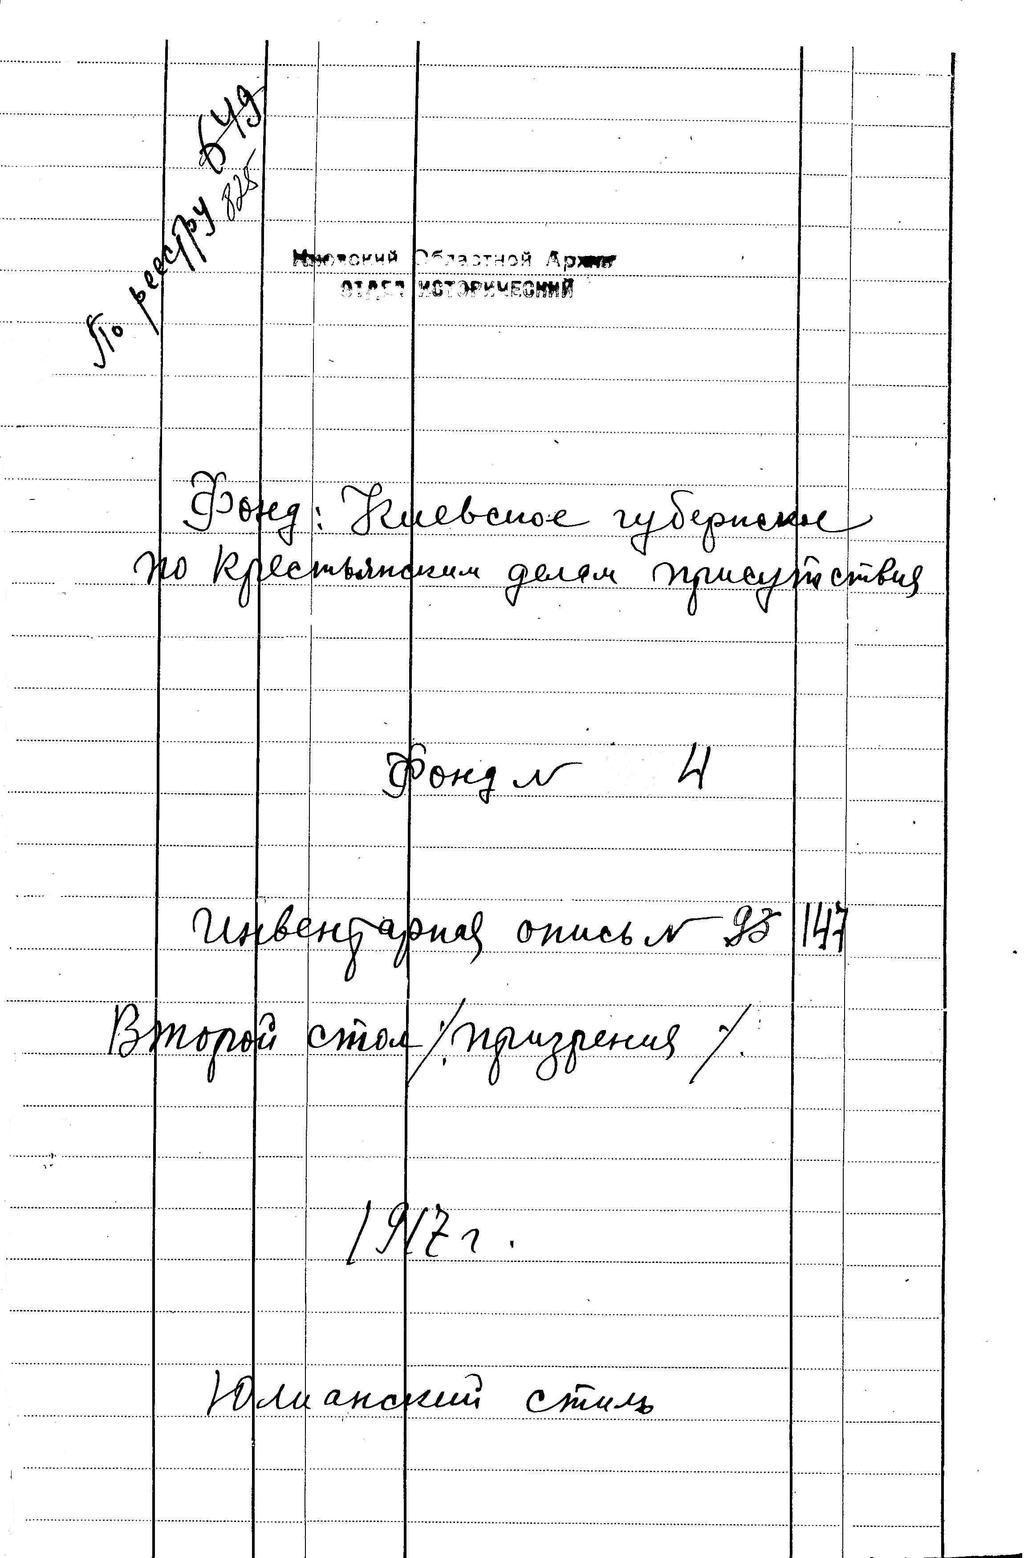 По реестру 649
825
Киевский Областной Архив
ОТДЕЛ ИСТОРИЧЕСКИЙ
Фонд: Киевское губернское
по крестьянским делам присутствия
Фонд № 4
Инвентарная опись № 93 147
Второй стол /.призрения/.
1917 г.
Юлианский стиль